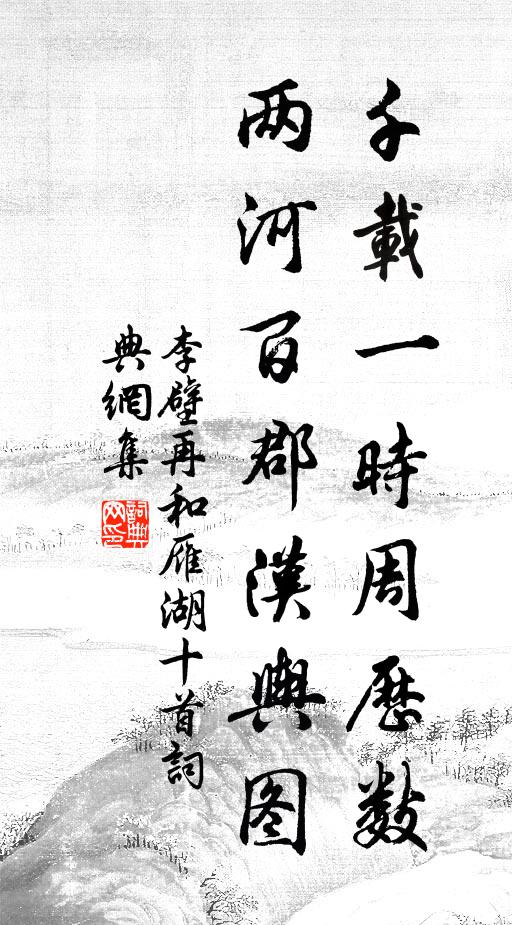 千載一時周歷數
两河百郡漢輿图
李壁再和雁湖十首詞
典網集
詞典
网印